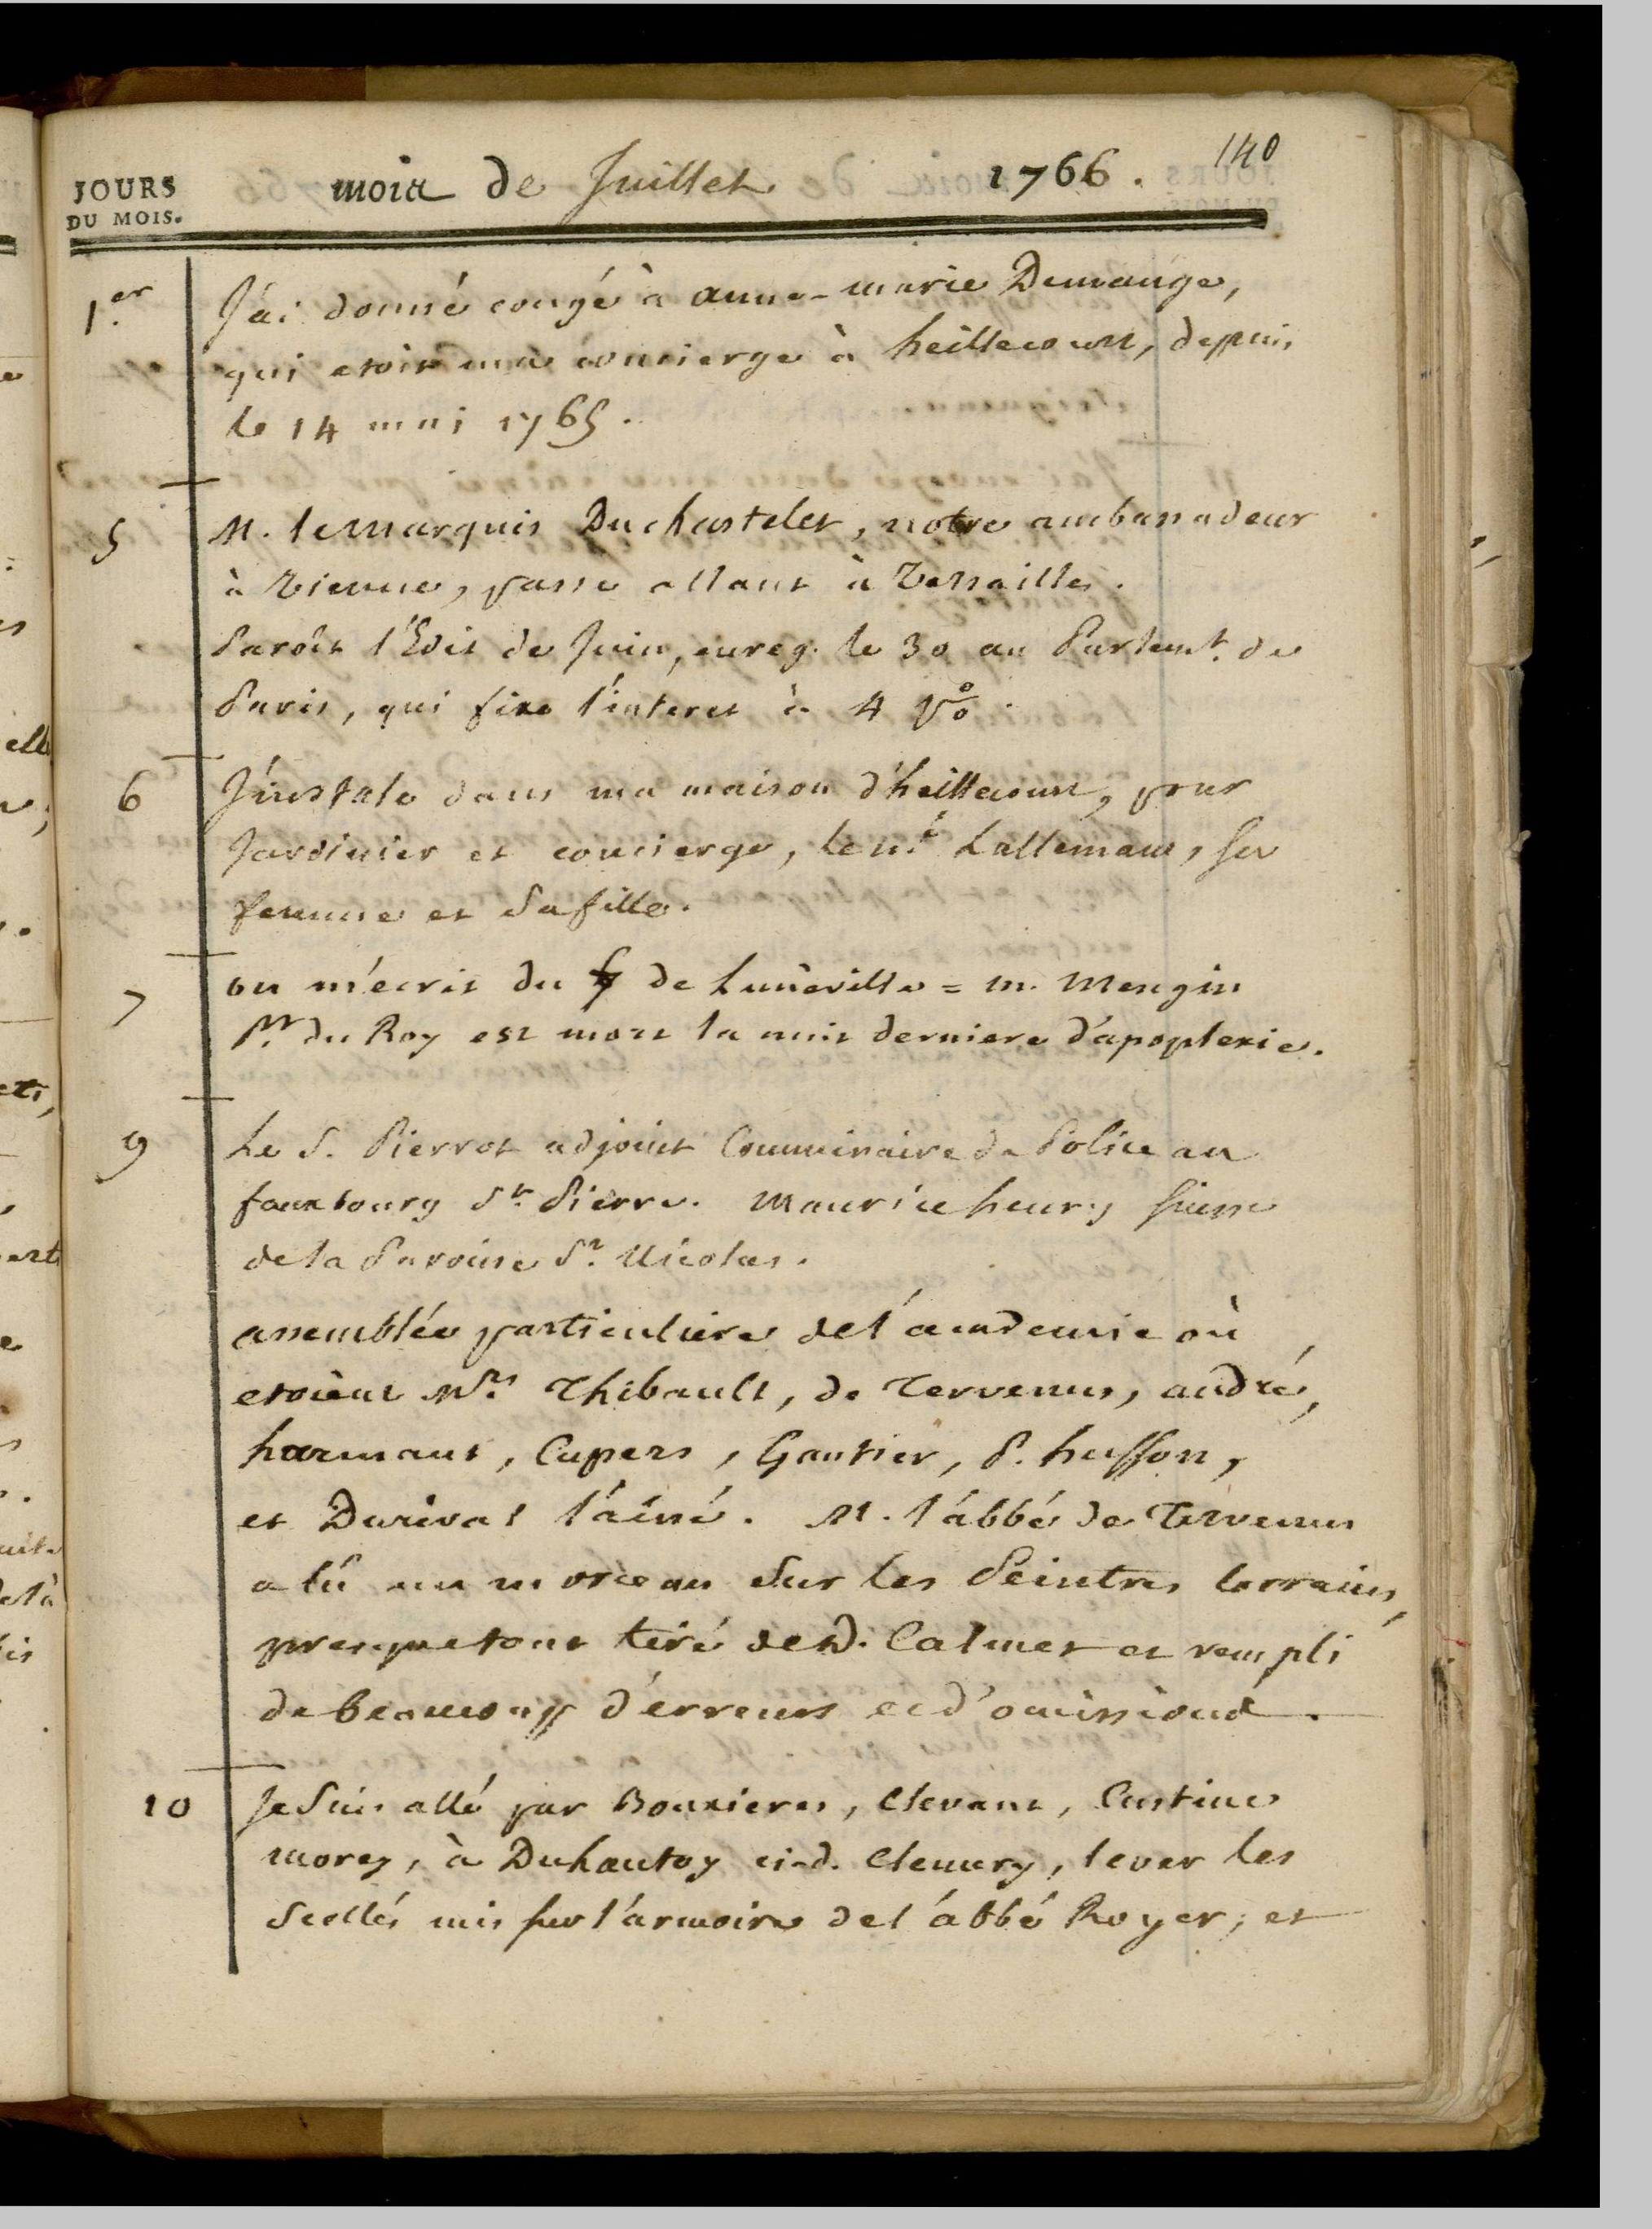 140
JOURS DU MOIS.
mois de Juillet 1766.
1.er J'ai donné congé à anne-marie Demange,
qui etoit ma concierge à heillecourt, depuis
le 14 mai 1765.
5 M. le Marquis Duchastelet, notre ambassadeur
à Vienne, passe allant à Versailles.
Paroît l'Edit de Juin, enreg. le 30 au Parlemt. de
Paris, qui fixe l'interet à 4 p%.
6 J'instale dans ma maison d'heillecourt, pour
Jardinier et concierge, le né Lallemant, sa
femme et Sa fille.
7 on m'ecrit du de Lunéville = m. Mengin
du Roy est mort la nuit derniere d'apoplexie.
9 Le S. Pierrot adjoint Commissaire de Police au
fauxbourg St. Pierre. Maurice henry suisse
de la Paroisse St. Nicolas.
assemblée particuliere de l'academie où
etoient Mrs. Thibault, de Tervenus, andré,
harmant, Cupers, Gautier, P. husson,
et Durival l'aîné. M. l'abbé de Tervenus
a lû un morceau Sur les Peintres lorrains,
presque tout tiré de D. Calmet et rempli
de beaucoup d'erreurs et d'omissions.
10 Je Suis allé par Bouxieres, Clevant, Custines
morey, à Duhautoy ci-d. Clemery, lever les
Scellés mis sur l'armoire de l'abbé Royer; et